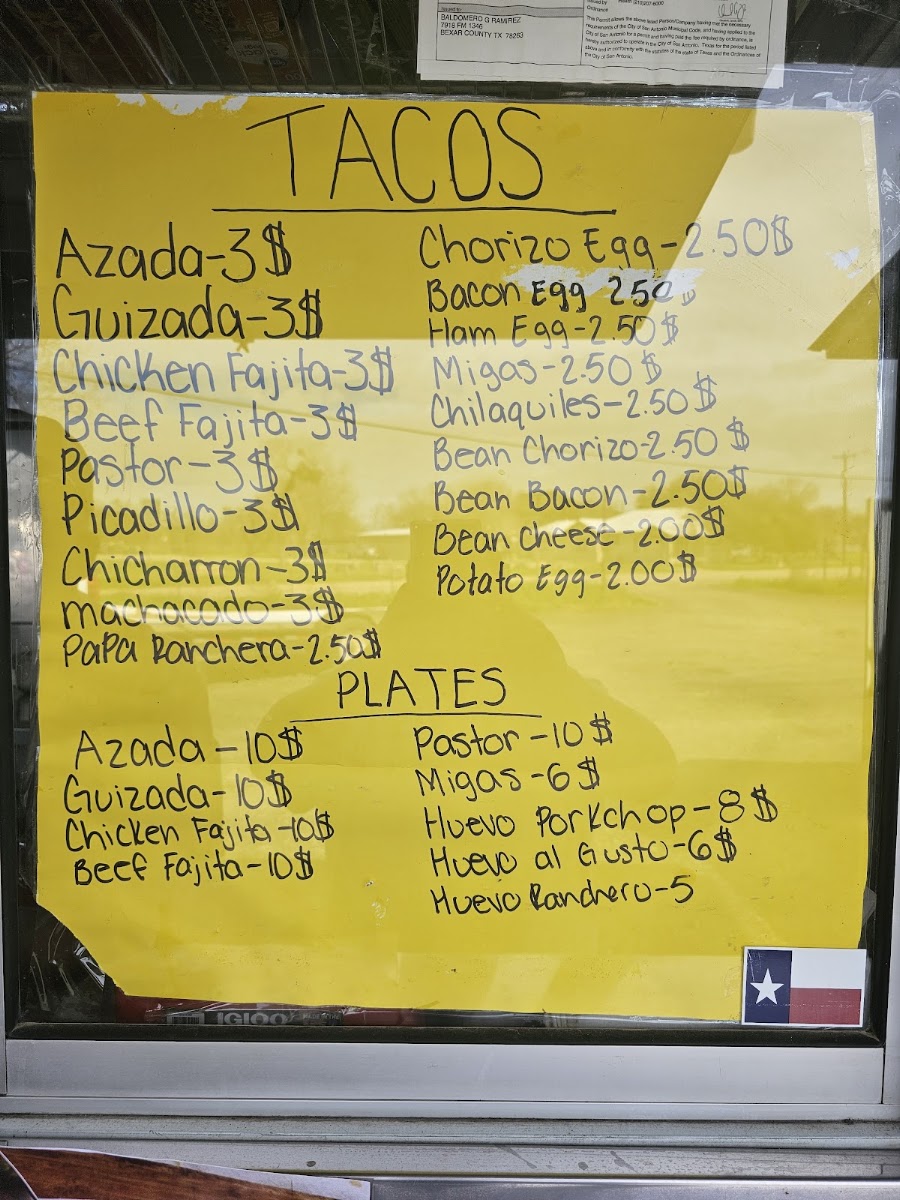 Issued to
BALDOMERO G RAMIREZ
7915 FM 1346
BEXAR COUNTY TX 78263
Ordinance
This Permit allows the above listed Person/Company having met the necessary
requirements of the City of San Antonio Municipal Code, and having applied to the
City of San Antonio for a permit and having paid the fee required by ordinance, is
hereby authorized to operate in the City of San Antonio, Texas for the period listed
above and in conformity with the statutes of the state of Texas and the Ordinances of
the City of San Antonio.
TACOS
Azada-3$
Guizada-3$
Chicken Fajita-3$
Beef Fajita-3$
Pastor-3$
Picadillo-3$
Chicharron-3$
machacado-3$
PaPa Ranchera-2.50$
Chorizo Egg-2.50$
Bacon Egg 2.50$
Ham Egg-2.50$
Migas-2.50$
Chilaquiles-2.50$
Bean Chorizo-2.50$
Bean Bacon-2.50$
Bean cheese-2.00$
Potato Egg-2.00$
PLATES
Azada-10$
Guizada-10$
Chicken Fajita-10$
Beef Fajita-10$
Pastor-10$
Migas-6$
Huevo Porkchop-8$
Huevo al Gusto-6$
Huevo Ranchero-5
IGLOO